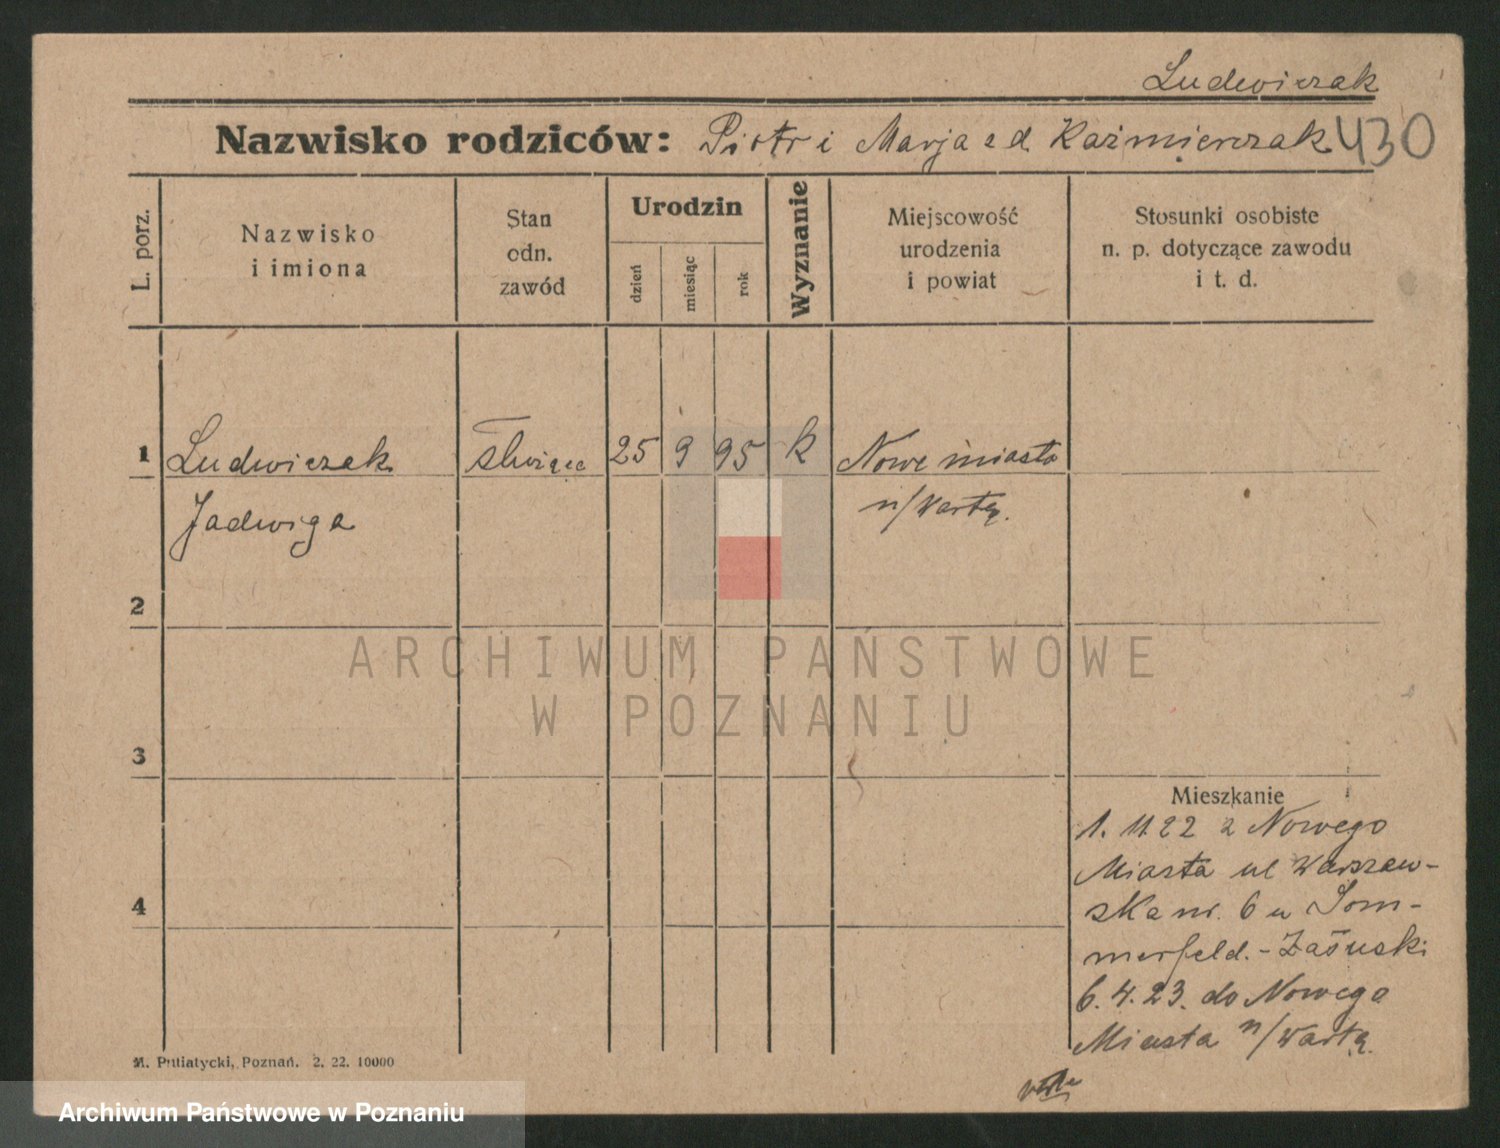 Ludwiczak
Nazwisko rodziców: Piotr i Marja z d. Kaźmierczak 430
L. porz.
Nazwisko
i imiona
Stan
odn.
zawód
Urodzin
dzień
miesiąc
rok
Wyznanie
Miejscowość
urodzenia
i powiat
Stosunki osobiste
n. p. dotyczące zawodu
i t. d.
1 Ludwiczak służąca 25 9 95 k Nowe miasto
Jadwiga n/Wartą.
2
3
Mieszkanie
1. 11 22 z Nowego
Miasta ul Warszaw-
4 ska nr. 6 u Som-
merfeld. -
6. 4. 23. do Nowego
Miasta n/Wartą.
M. Putiatycki, Poznań. 2. 22. 10000
ARCHIWUM PAŃSTWOWE
W POZNANIU
Archiwum Państwowe w Poznaniu